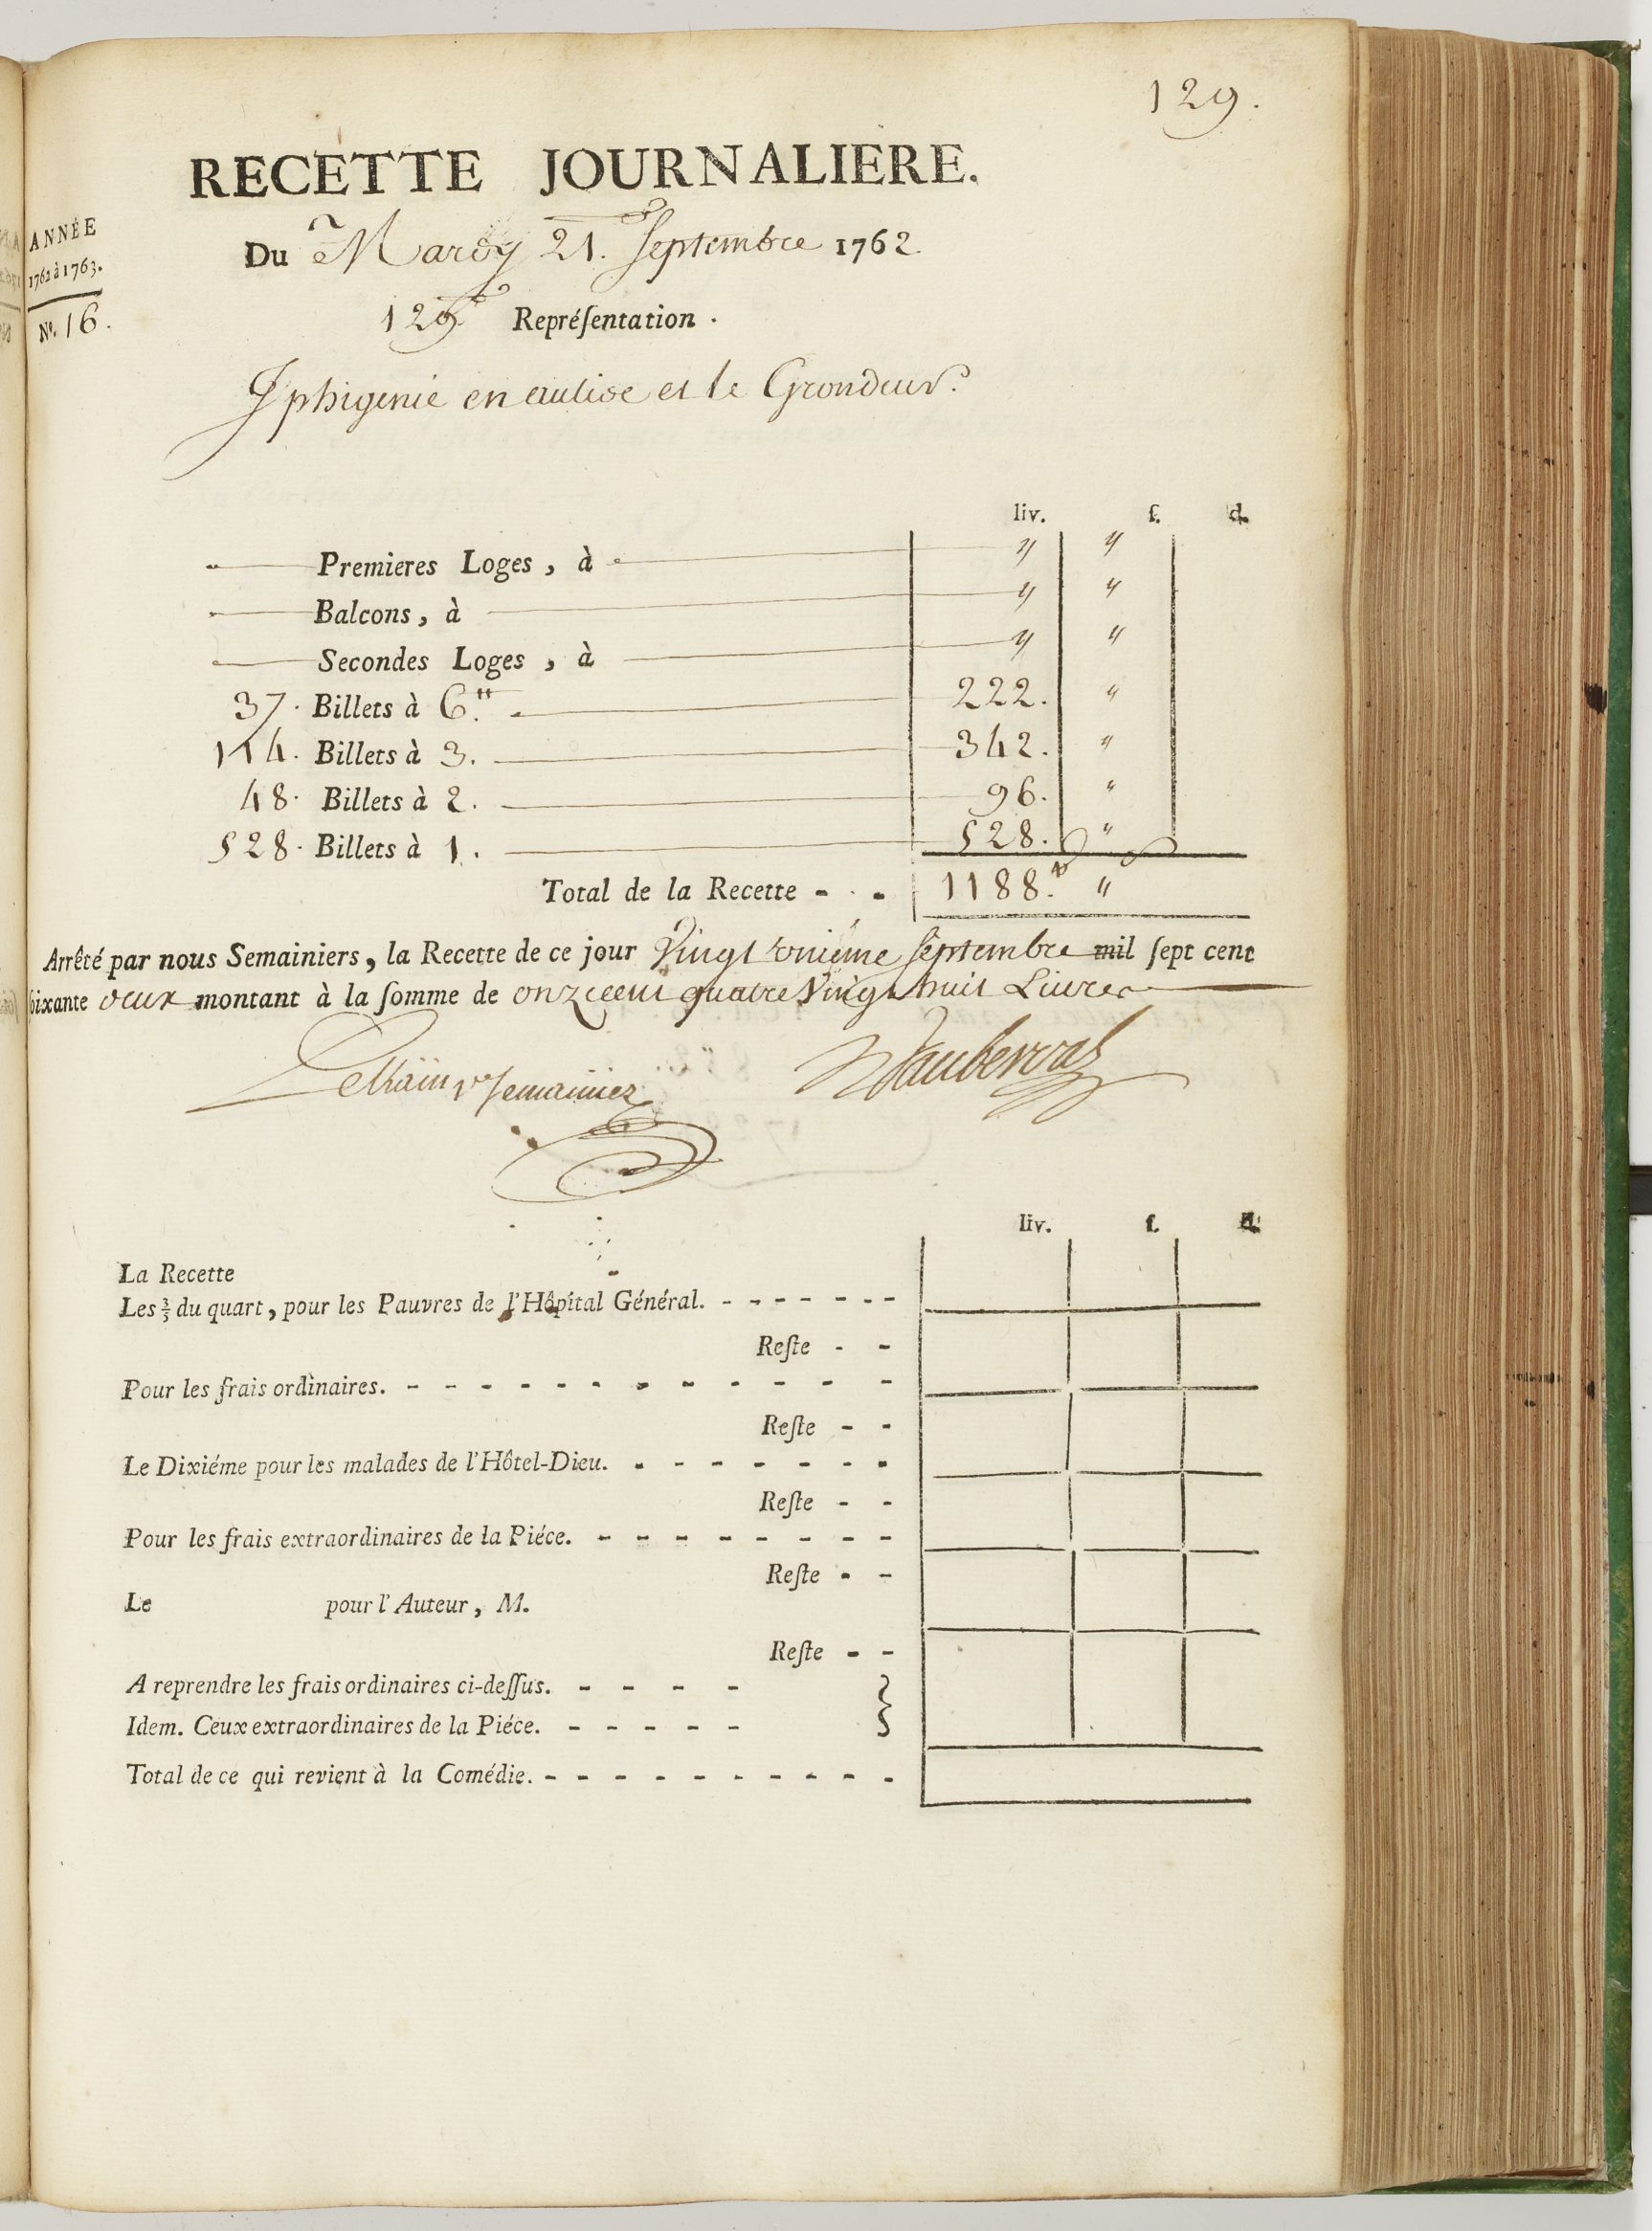 129.
RECETTE JOURNALIERE.
ANNÉE
1762 à 1763.
Nº. 16.
Du Mardy 21. Septembre 1762.
129.e Repréſentation.
Iphigenie en aulide et le Grondeur.
liv. ſ. d.
Premieres Loges, à " "
Balcons, à " "
Secondes Loges, à " "
37. Billets à 6.tt 222. "
114. Billets à 3. 342. "
48. Billets à 2. 96. "
528. Billets à 1. 528. "
Total de la Recette - - - 1188.tt "
Arrêté par nous Semainiers, la Recette de ce jour Vingt uniéme Septembre mil ſept cent
ſoixante deux montant à la ſomme de onze cent quatre Vingt huit Livres
LeKain 1er Semainier Dauberval
liv. ſ. d.
La Recette
Les 3/5 du quart, pour les Pauvres de l'Hôpital Général. - - - - - - -
Reſte - -
Pour les frais ordinaires. - - - - - - - - - - - - - -
Reſte - -
Le Dixiéme pour les malades de l'Hôtel-Dieu. - - - - - - -
Reſte - -
Pour les frais extraordinaires de la Piéce. - - - - - - - -
Reſte - -
Le pour l'Auteur, M.
Reſte - -
A reprendre les frais ordinaires ci-deſſus. - - - -
Idem. Ceux extraordinaires de la Piéce. - - - - -
Total de ce qui revient à la Comédie. - - - - - - - - - -